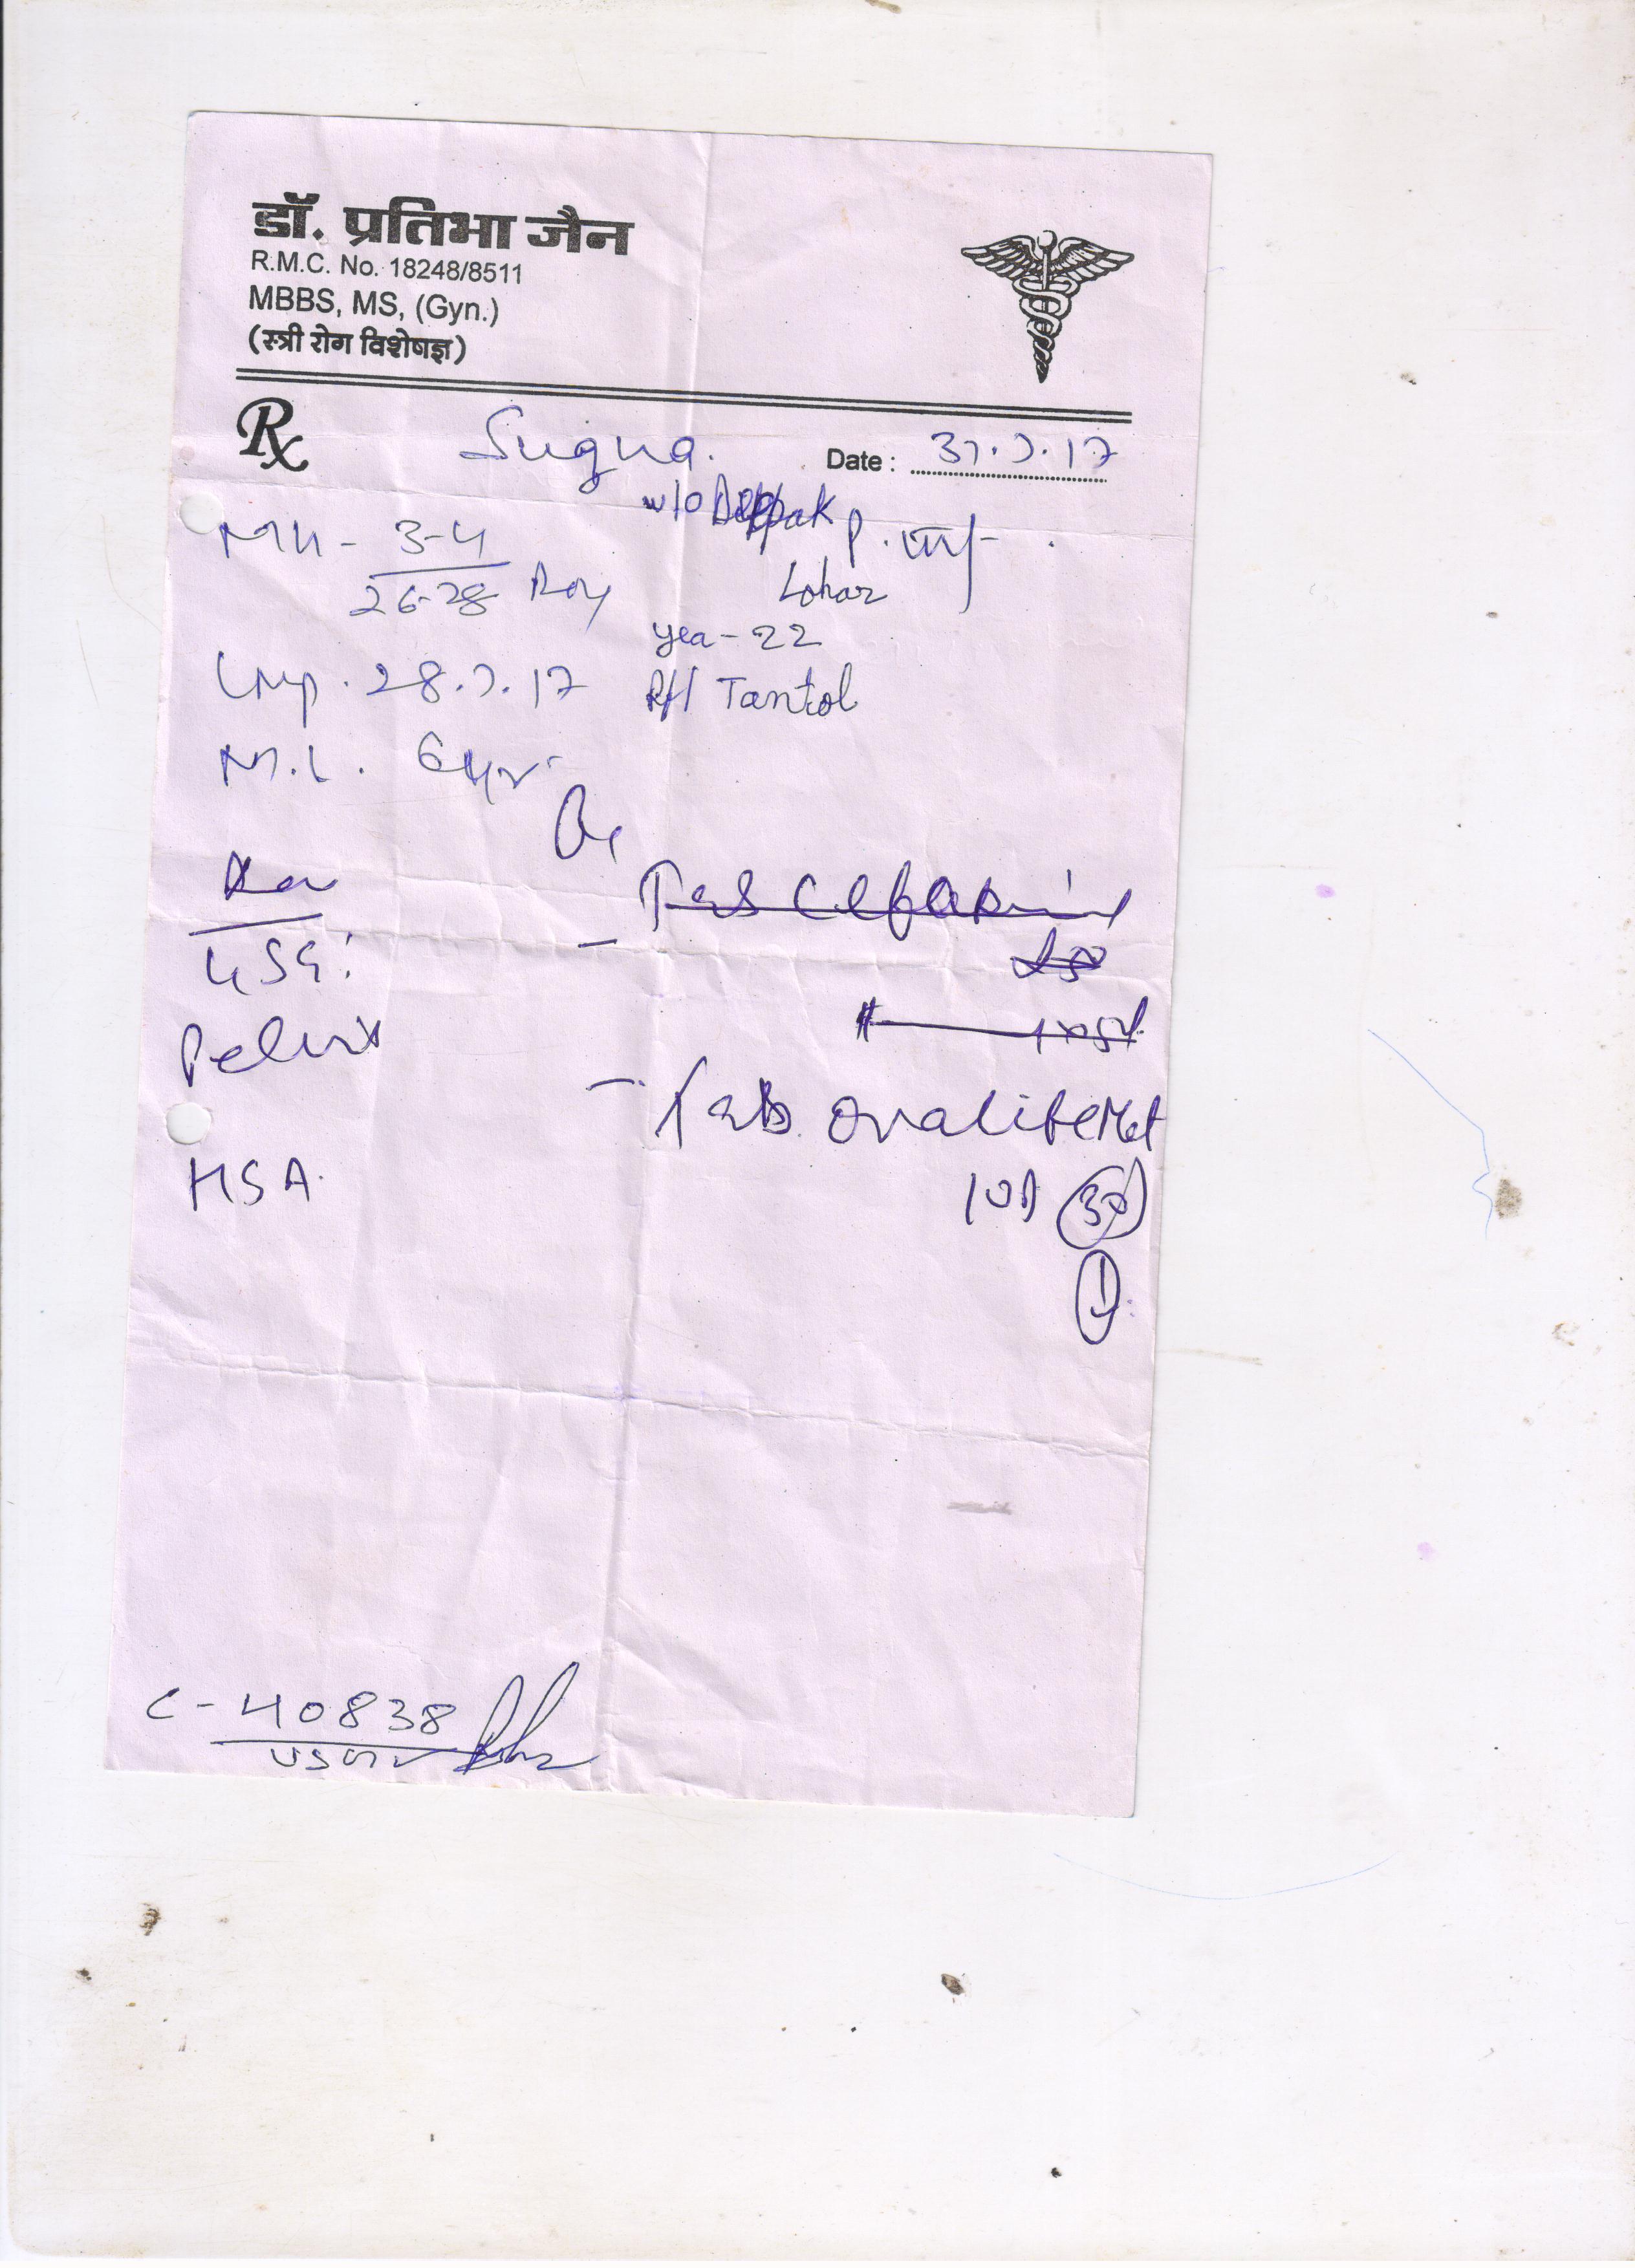 डॉ. प्रतिभा जैन
R.M.C. No. 18248/8511
MBBS, MS, (Gyn.)
(स्त्री रोग विशेषज्ञ)
Rx Sugna. Date : 31.7.17
w/o Deepak
MH - 3-4
26-28 Day
Lohar
yea - 22
Lmp. 28.7.17
R/I Tantol
M.L. 6 yr
Tab Cefakind
USG:
Pelvis
- Tab. Ovalife Met
HSA.
1 OD 30
1
C - 40838